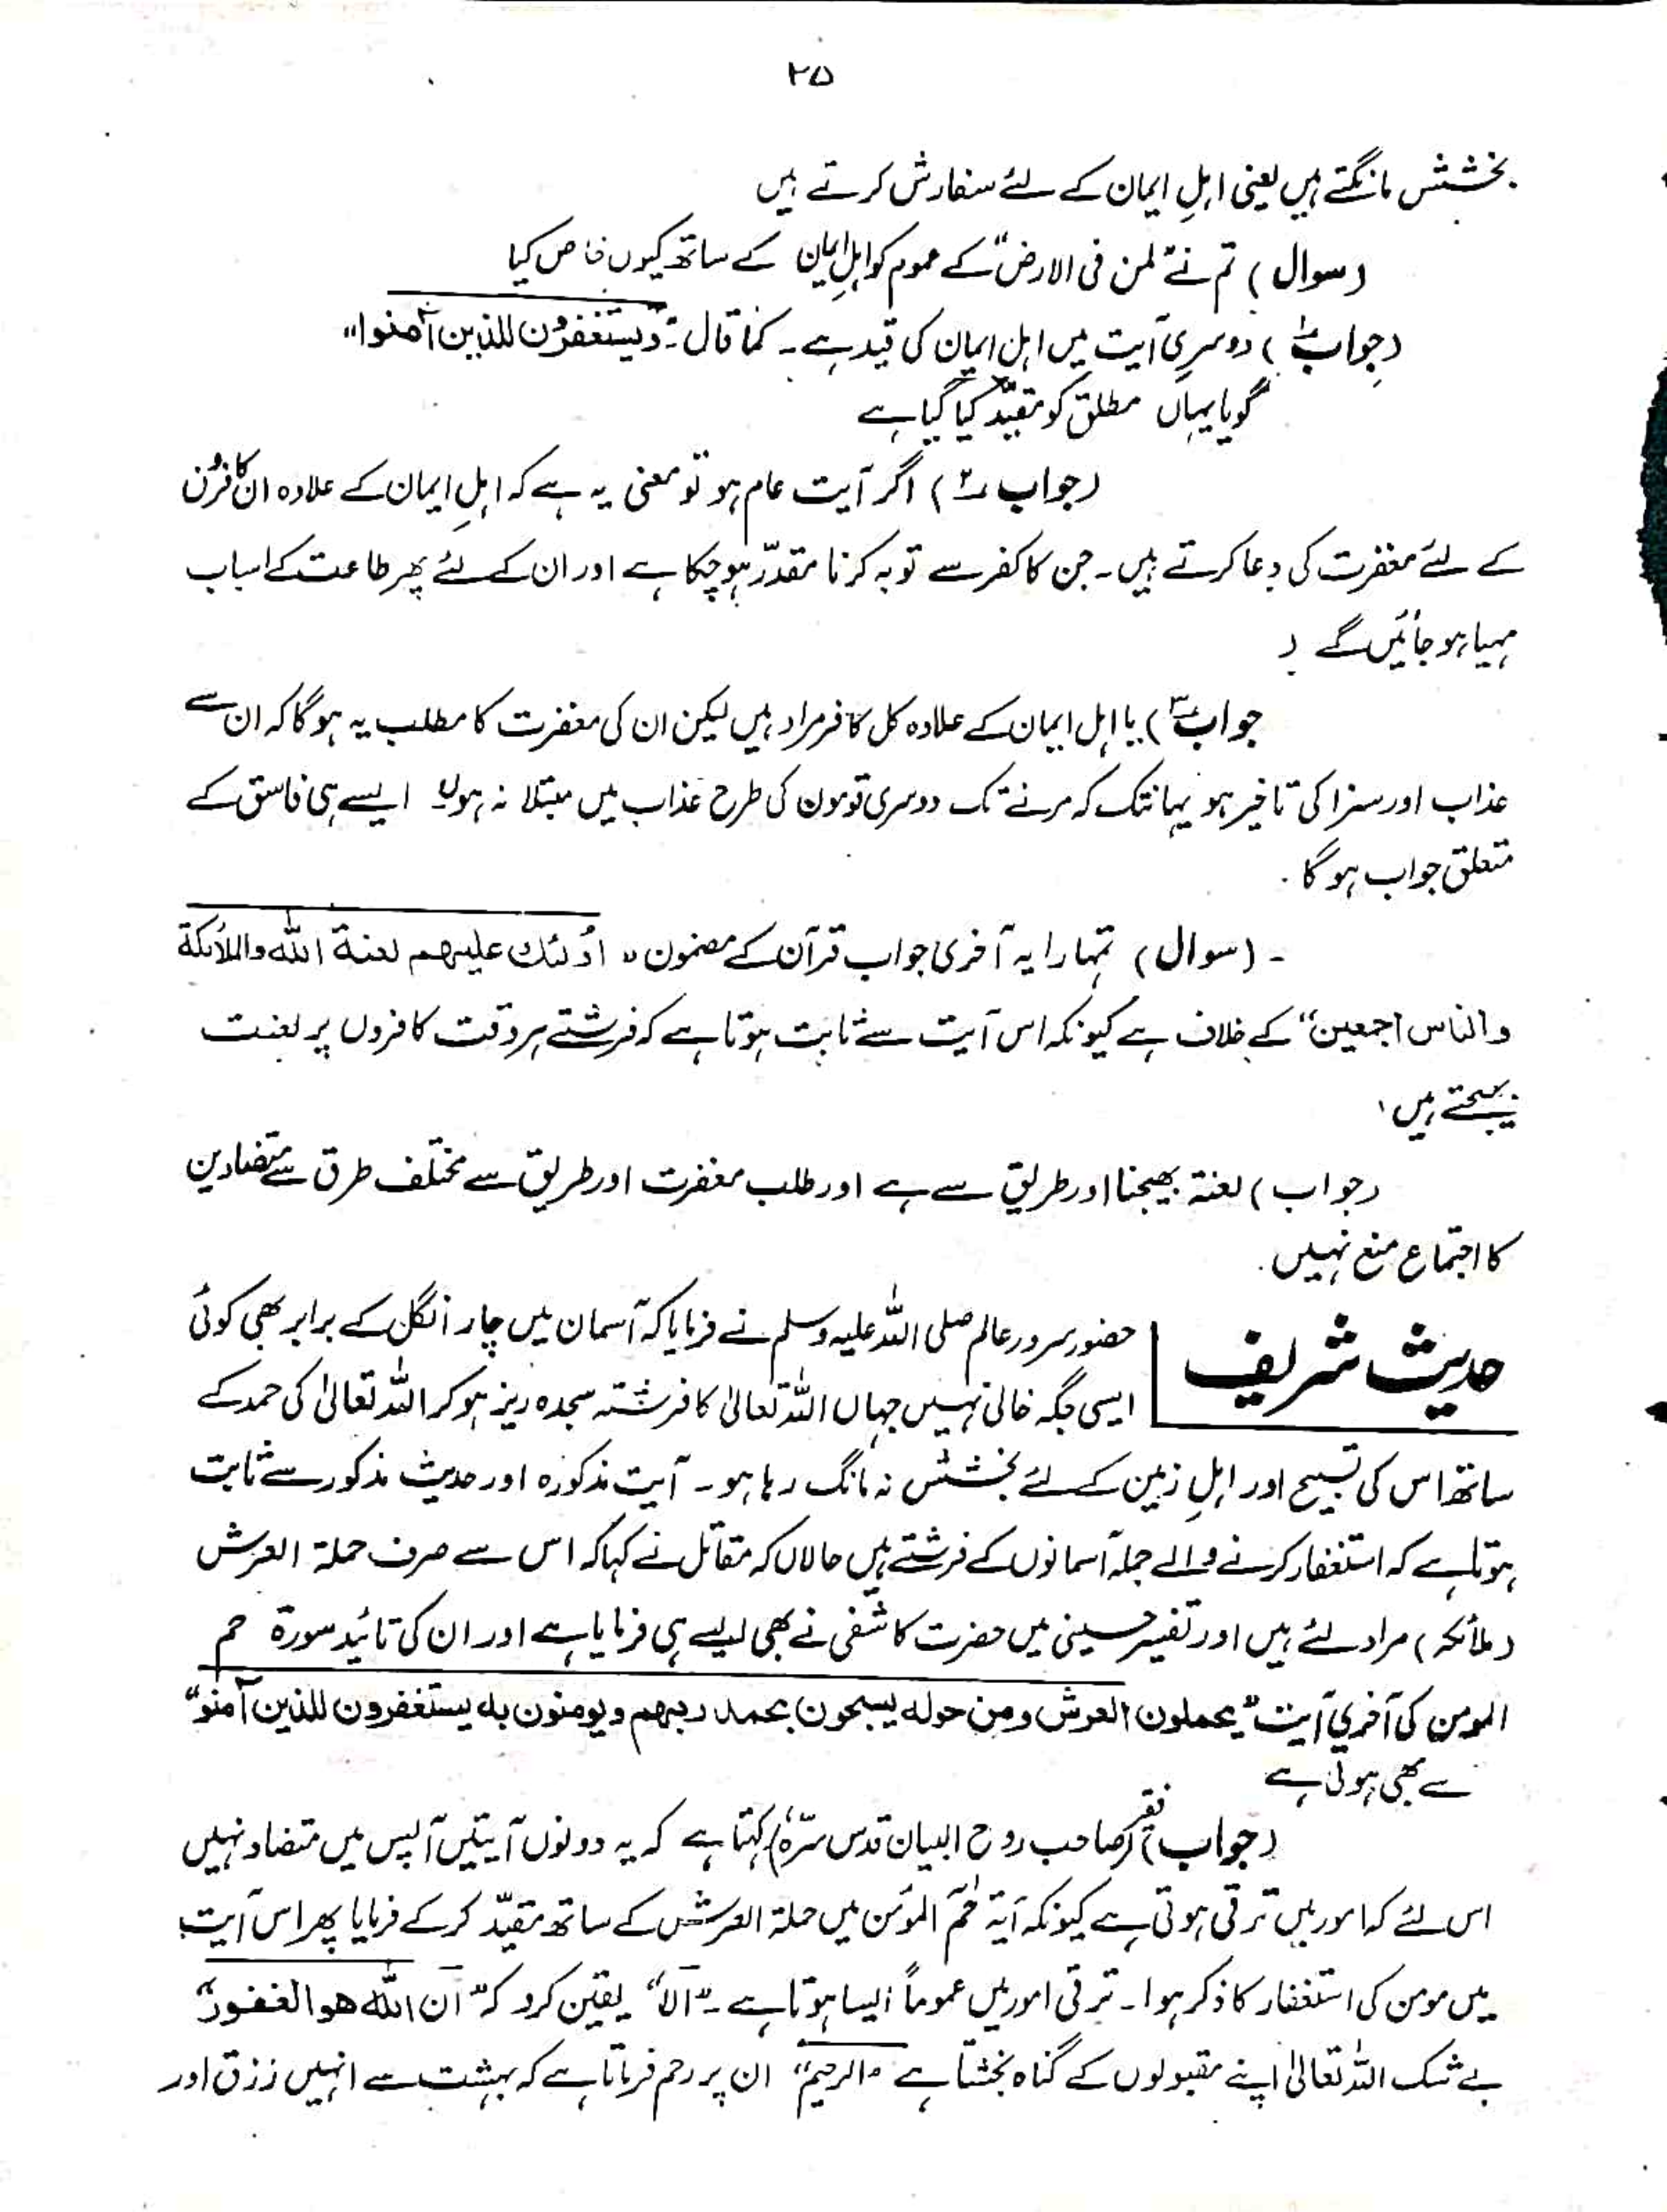 ۲۵
بخشش مانگتے ہیں یعنی اہلِ ایمان کے لئے سفارش کرتے ہیں
(سوال) تم نے "لمن فی الارض" کے عموم کو اہلِ ایمان کے ساتھ کیوں خاص کیا
(جواب ۱) دوسری آیت میں اہل ایمان کی قید ہے۔ کما قال: "ویستغفرون للذین آمنوا"
گویا یہاں مطلق کو مقیّد کیا گیا ہے
(جواب ۲) اگر آیت عام ہو تو معنی یہ ہے کہ اہلِ ایمان کے علاوہ ان کافروں
کے لئے مغفرت کی دعا کرتے ہیں۔ جن کا کفر سے توبہ کرنا مقدّر ہو چکا ہے اور ان کے لئے پھر طاعت کے اسباب
مہیا ہو جائیں گے
جواب ۳) یا اہل ایمان کے علاوہ کل کافر مراد ہیں لیکن ان کی مغفرت کا مطلب یہ ہوگا کہ ان سے
عذاب اور سزا کی تاخیر ہو یہانتک کہ مرنے تک دوسری قوموں کی طرح عذاب میں مبتلا نہ ہوں ایسے ہی فاسق کے
متعلق جواب ہو گا۔
۔ (سوال) تمہارا یہ آخری جواب قرآن کے مضمون " اُولئک علیھم لعنۃ اللہ والملائکۃ
والناس اجمعین" کے خلاف ہے کیونکہ اس آیت سے ثابت ہوتا ہے کہ فرشتے ہر وقت کافروں پر لعنت
بھیجتے ہیں،
(جواب) لعنۃ بھیجنا اور طریق سے ہے اور طلب مغفرت اور طریق سے مختلف طرق سے متضادین
کا اجتماع منع نہیں۔
حدیث شریف
حضور سرور عالم صلی اللہ علیہ وسلم نے فرمایا کہ آسمان میں چار انگل کے برابر بھی کوئی
ایسی جگہ خالی نہیں جہاں اللہ تعالیٰ کا فرشتہ سجدہ ریز ہو کر اللہ تعالیٰ کی حمد کے
ساتھ اس کی تسبیح اور اہلِ زمین کے لئے بخشش نہ مانگ رہا ہو۔ آیت مذکورہ اور حدیث مذکور سے ثابت
ہوتا ہے کہ استغفار کرنے والے جملہ آسمانوں کے فرشتے ہیں حالاں کہ مقاتل نے کہا کہ اس سے صرف حملۃ العرش
(ملائکہ) مراد لئے ہیں اور تفسیر حسینی میں حضرت کاشفی نے بھی ایسے ہی فرمایا ہے اور ان کی تائید سورۃ حم
المومن کی آخری آیت "یحملون العرش ومن حولہ یسبحون بحمد ربھم ویومنون بہ یستغفرون للذین آمنو"
سے بھی ہوتی ہے
(جواب) فقیر (صاحب روح البیان قدس سرّہٗ) کہتا ہے کہ یہ دونوں آیتیں آپس میں متضاد نہیں
اس لئے کہ امور میں ترقی ہوتی ہے کیونکہ آیۃ حٰمٓ المؤمن میں حملۃ العرش کے ساتھ مقیّد کر کے فرمایا پھر اس آیت
میں مومن کی استغفار کا ذکر ہوا۔ ترقی امور میں عموماً ایسا ہوتا ہے۔ "اَلَا" یقین کرو کہ "ان اللہ ھو الغفور"
بے شک اللہ تعالیٰ اپنے مقبولوں کے گناہ بخشتا ہے "الرحیم" ان پر رحم فرماتا ہے کہ بہشت سے انہیں رزق اور